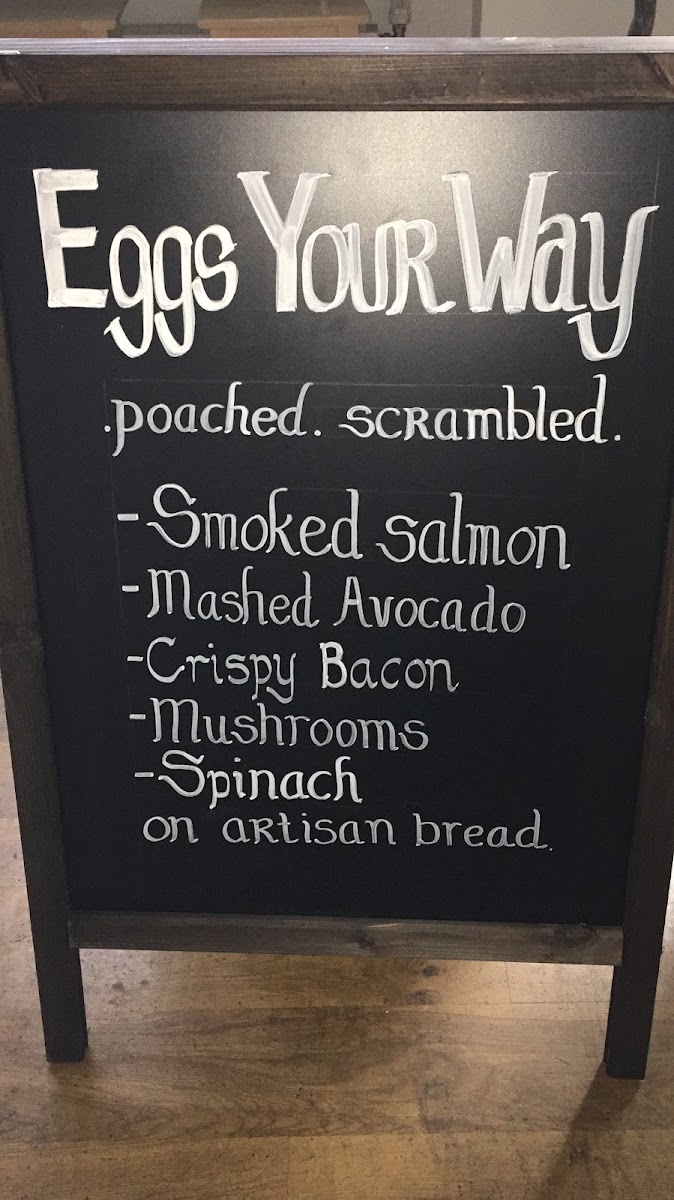 Eggs Your Way
.poached. scrambled.
-Smoked salmon
-Mashed Avocado
-Crispy Bacon
-Mushrooms
-Spinach
on artisan bread.